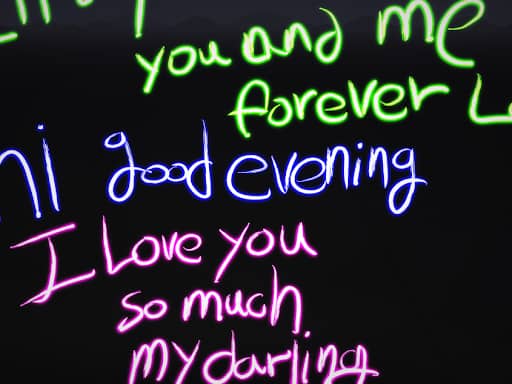 you and me
forever
hi good evening
I Love you
so much
my darling